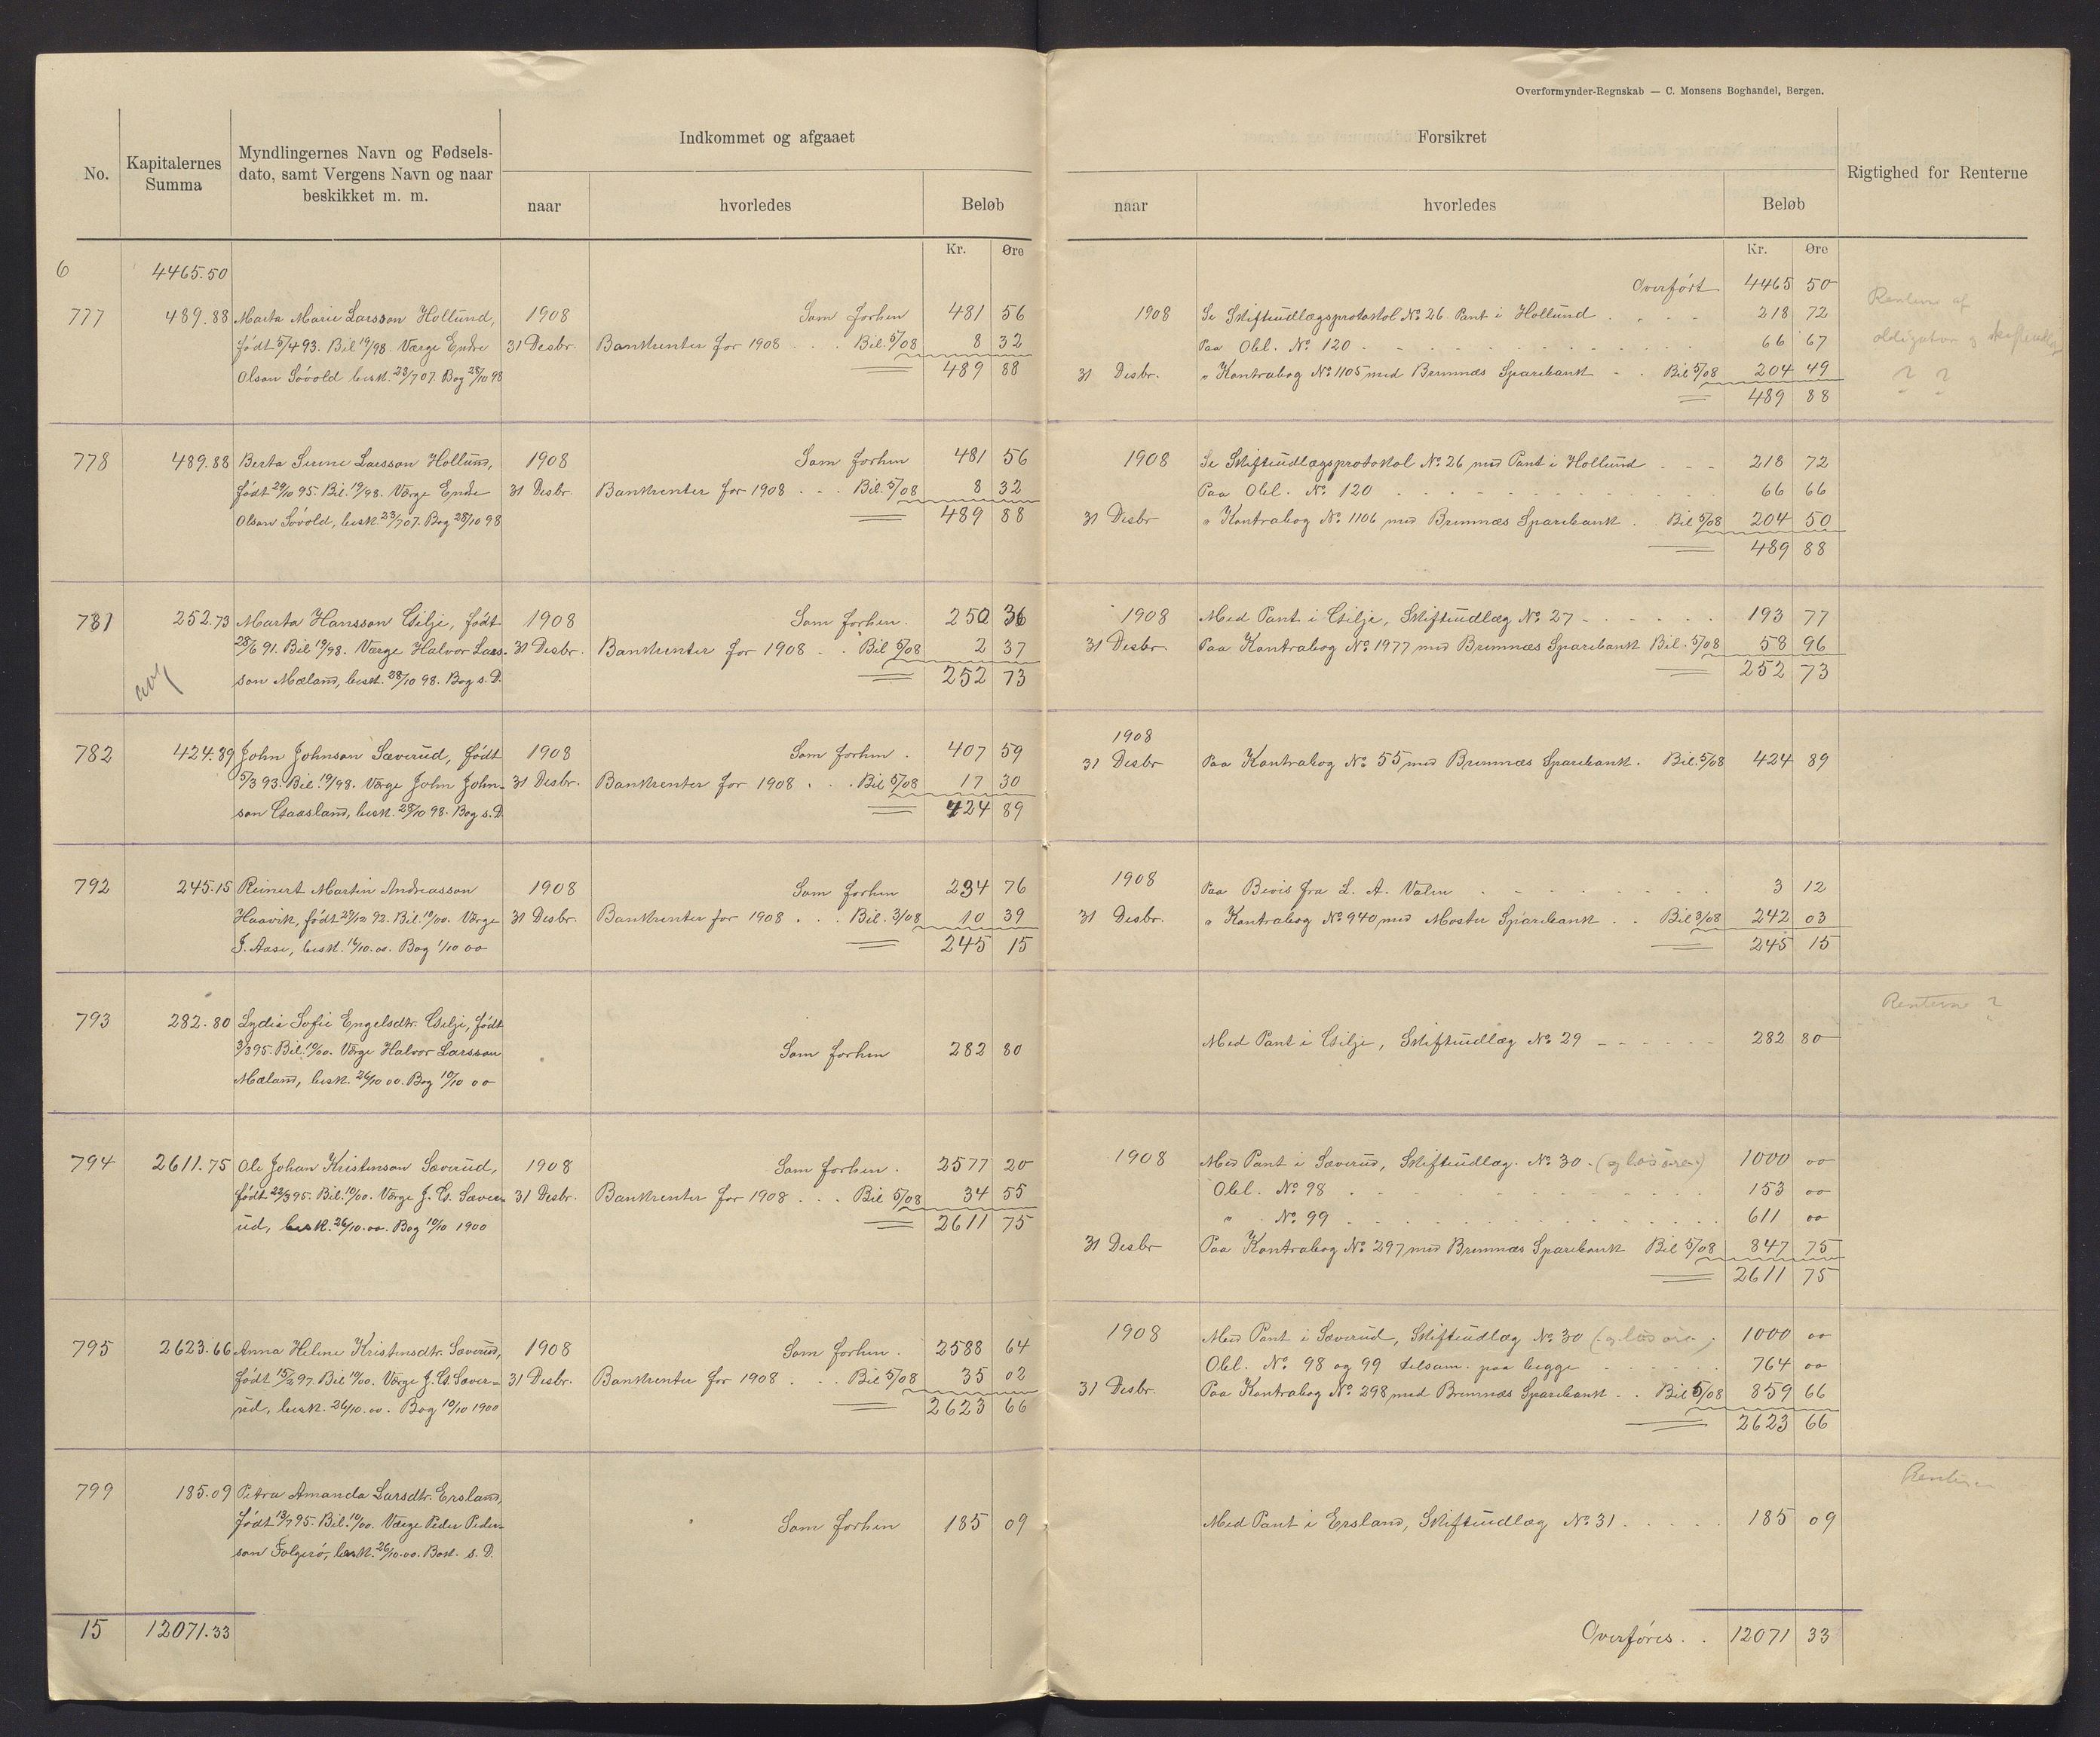 Overformynder-Regnskab — C. Monsens Boghandel, Bergen.
No. Kapitalernes Summa Myndlingernes Navn og Fødsels-
dato, samt Vergens Navn og naar
beskikket m. m.
Indkommet og afgaaet
naar hvorledes Beløb
Kr. Øre
Forsikret
naar hvorledes Beløb
Kr. Øre
Rigtighed for Renterne
6 4465.50
Overført 4465 50
777 489.88 Marta Marie Larsson Hollund, 1908 Som forhen 481 56
født 5/4 93. Bil 19/98. Værge Endre 31 Desbr. Bankrenter for 1908 . . . Bil. 5/08 8 32
Olson Søvold besk. 23/7 07. Bog 28/10 98 489 88
1908 Se Skifteudlægsprotokol No. 26. Pant i Hollund 218 72
Paa Obl. No. 120 66 67
31 Desbr. " Kontrabog No. 1105 med Bremnæs Sparebank Bil 5/08 204 49
489 88
Renterne af
obligation og
? ?
778 489.88 Berta Serine Larsson Hollund, 1908 Som forhen 481 56
født 29/10 95. Bil. 19/98. Værge Endre 31 Desbr. Bankrenter for 1908 . . . Bil. 5/08 8 32
Olson Søvold, besk. 23/7 07. Bog 28/10 98 489 88
1908 Se Skifteudlægsprotokol No. 26 med Pant i Hollund 218 72
Paa Obl. No. 120 66 66
31 Desbr " Kontrabog No. 1106 med Bremnæs Sparebank . Bil 5/08 204 50
489 88
781 252.73 Marta Hansson Gilje, født 1908 Som forhen. 250 36
28/6 91. Bil 19/98. Værge Halvor Lars- 31 Desbr. Bankrenter for 1908 . . Bil 5/08 2 37
son Mæland, besk. 28/10 98. Bog s. D. 252 73
1908 Med Pant i Gilje, Skifteudlæg No. 27 193 77
31 Desbr. Paa Kontrabog No. 1977 med Bremnæs Sparebank Bil. 5/08 58 96
252 73
782 424.89 John Johnson Sæverud, født 1908 Som forhen . 407 59
5/3 93. Bil. 19/98. Værge John John- 31 Desbr. Bankrenter for 1908 . . . Bil 5/08 17 30
son Gaasland, besk. 28/10 98. Bog s. D. 424 89
1908
31 Desbr Paa Kontrabog No. 55 med Bremnæs Sparebank. Bil. 5/08 424 89
792 245.15 Reinert Martin Andreasson 1908 Som forhen 234 76
Haavik, født 29/12 92. Bil. 10/00. Værge 31 Desbr. Bankrenter for 1908 . . . Bil. 3/08 10 39
J. Aase, besk. 16/10.00. Bog 1/10 00 245 15
1908 Paa Bevis fra L. A. Valen 3 12
31 Desbr. " Kontrabog No. 940 med Moster Sparebank . . Bil 3/08 242 03
245 15
793 282.80 Lydia Sofie Engelsdtr. Gilje, født
3/3 95. Bil. 10/00. Værge Halvor Larsson Som forhen 282 80
Mæland, besk. 26/10 00. Bog 10/10 00
Med Pant i Gilje, Skifteudlæg No. 29 282 80
Renterne ?
794 2611.75 Ole Johan Kristenson Sæverud, 1908 Som forhen . 2577 20
født 22/3 95. Bil. 10/00. Værge J. G. Sæver- 31 Desbr. Bankrenter for 1908 . . . Bil 5/08 34 55
ud, besk. 26/10.00. Bog 10/10 1900 2611 75
1908 Med Pant i Sæverud, Skifteudlæg. No. 30 (og løsøre) 1000 00
Obl. No. 98 153 00
" No. 99 611 00
31 Desbr Paa Kontrabog No. 297 med Bremnæs Sparebank Bil 5/08 847 75
2611 75
795 2623.66 Anna Helene Kristensdtr. Sæverud, 1908 Som forhen . 2588 64
født 15/2 97. Bil 10/00. Værge J. G. Sæver- 31 Desbr. Bankrenter for 1908 . . . Bil 5/08 35 02
ud, besk. 26/10.00. Bog 10/10 1900 2623 66
1908 Med Pant i Sæverud, Skifteudlæg No. 30 (og løsøre) 1000 00
Obl. No. 98 og 99 tilsam. paa begge 764 00
31 Desbr. Paa Kontrabog No. 298 med Bremnæs Sparebank . . Bil 5/08 859 66
2623 66
799 185.09 Petra Amanda Larsdtr. Ersland,
født 13/7 95. Bil. 10/00. Værge Peder Peder- Som forhen 185 09
son Folgerø, besk. 26/10.00. Bok. s. D.
Med Pant i Ersland, Skifteudlæg No. 31 185 09
Renterne
15 12071.33
Overføres . . 12071 33